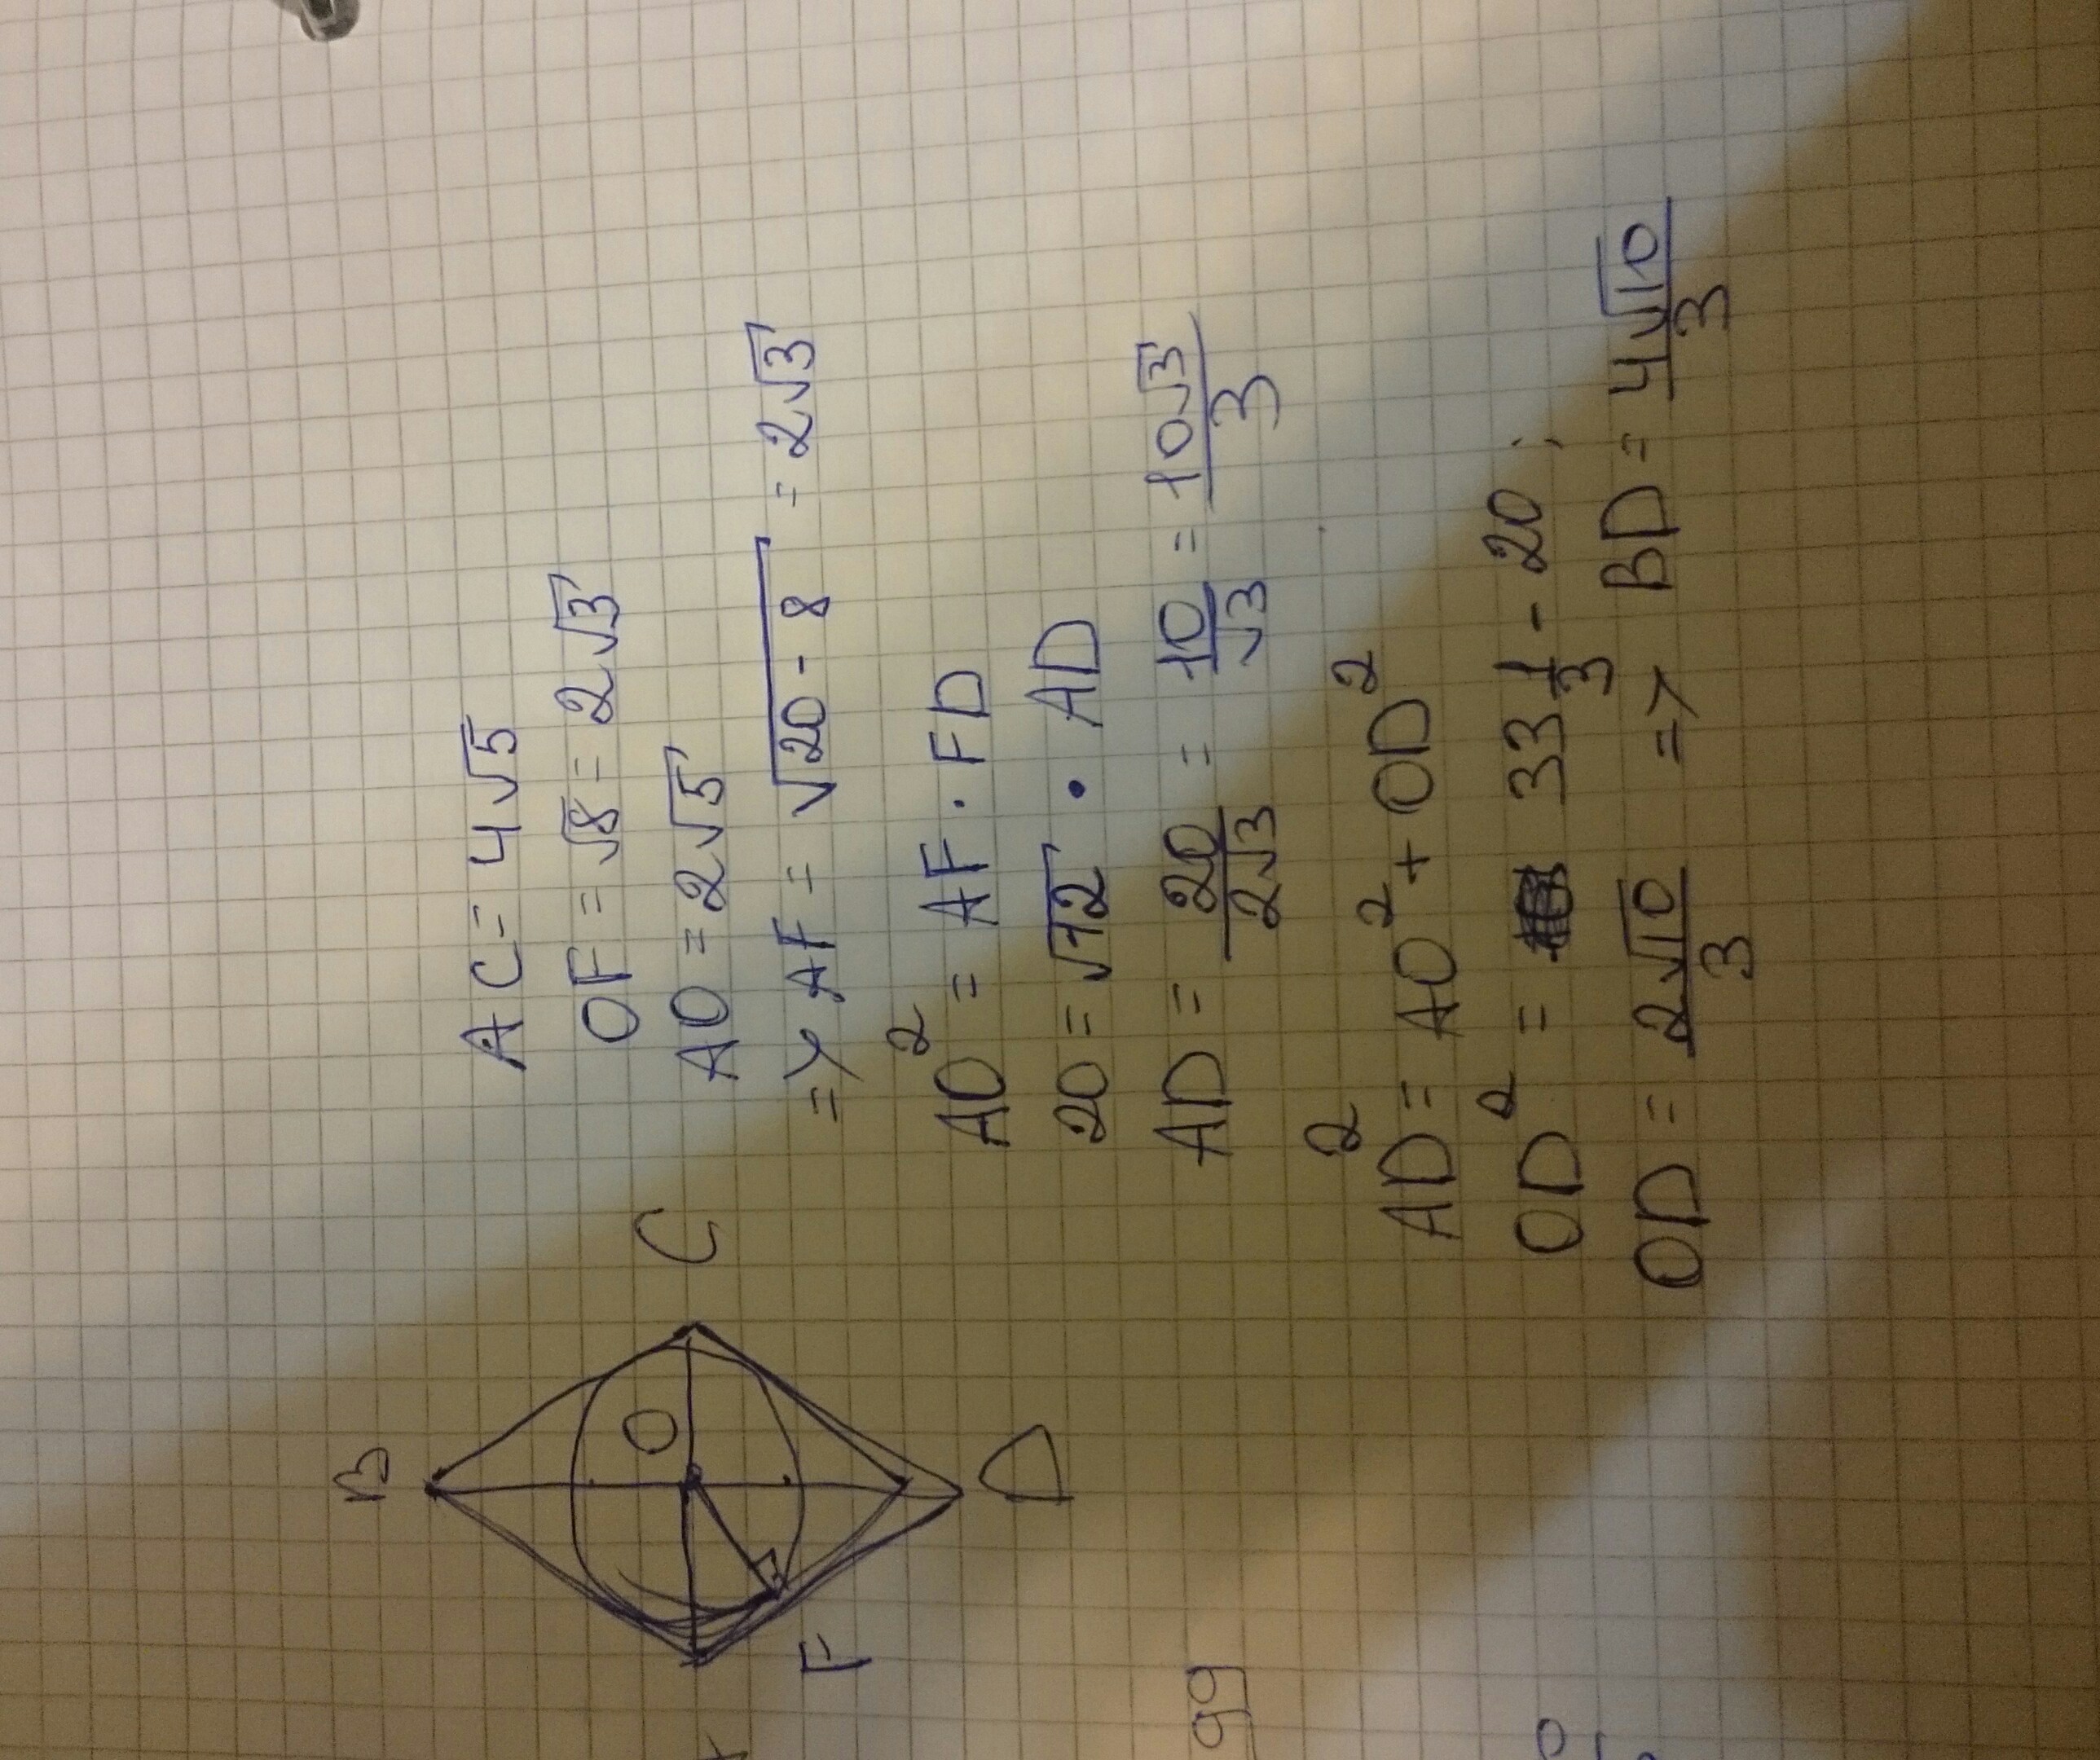 B
O
C
F
D
AC = 4√5
OF = √8 = 2√3
AO = 2√5
=> AF = √(20 - 8) = 2√3
AO² = AF · FD
20 = √12 · AD
AD = 20/(2√3) = 10/√3 = 10√3/3
AD² = AO² + OD²
OD² = 33 1/3 - 20 ;
OD = 2√10/3 => BD = 4√10/3
99